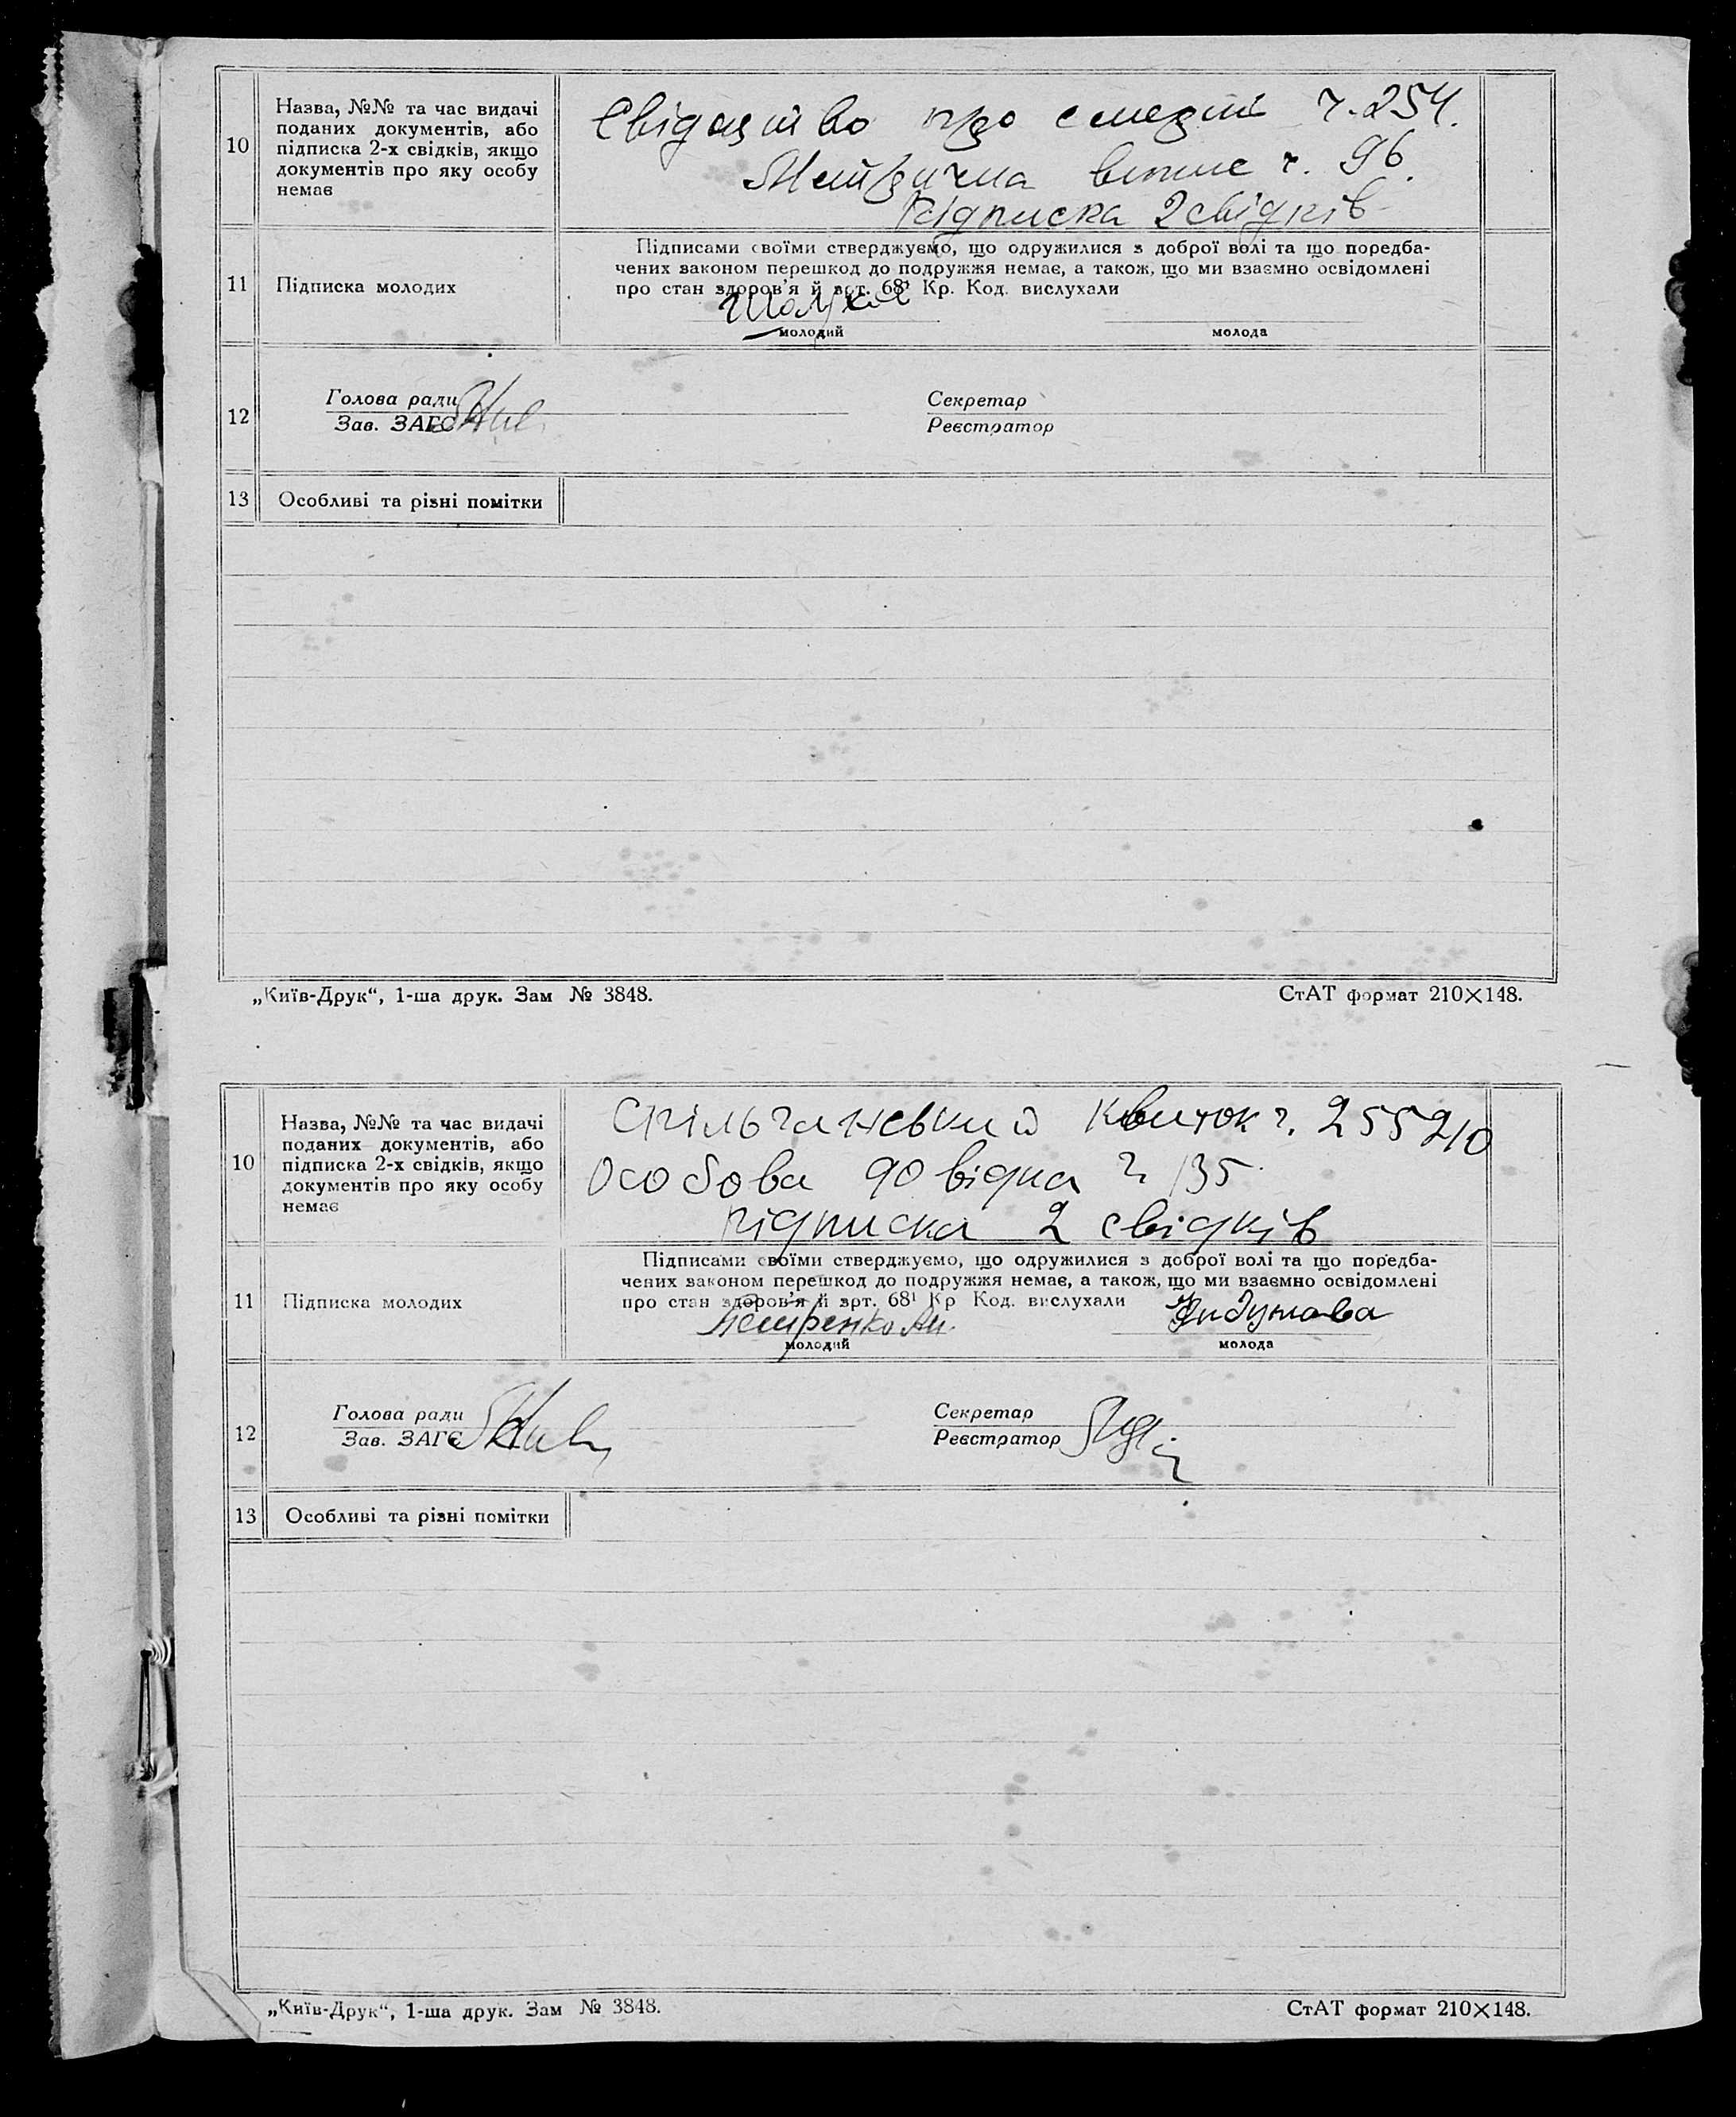 10
Назва, №№ та час видачі
поданих документів, або
підписка 2-х свідків, якщо
документів про яку особу
немає
Свідацтво про смерть ч. 254.
Метрична випис ч. 96.
Підписка 2 свідків
11
Підписка молодих
Підписами своїми стверджуємо, що одружилися з доброї волі та що передба-
чених законом перешкод до подружжя немає, а також, що ми взаємно освідомлені
про стан здоров'я й арт. 68¹ Кр. Код. вислухали
молодий
молода
12
Голова ради
Зав. ЗАГС
Секретар
Реєстратор
13
Особливі та різні помітки
„Київ-Друк“, 1-ша друк. Зам № 3848.
СтАТ формат 210×148.
10
Назва, №№ та час видачі
поданих документів, або
підписка 2-х свідків, якщо
документів про яку особу
немає
Спільчанський квиток ч. 255210
Особова довідка ч 135
підписка 2 свідків
11
Підписка молодих
Підписами своїми стверджуємо, що одружилися з доброї волі та що передба-
чених законом перешкод до подружжя немає, а також, що ми взаємно освідомлені
про стан здоров'я й арт. 68¹ Кр Код. вислухали
Петренко Ан.
молодий
молода
12
Голова ради
Зав. ЗАГС
Секретар
Реєстратор
13
Особливі та різні помітки
„Київ-Друк“, 1-ша друк. Зам № 3848.
СтАТ формат 210×148.